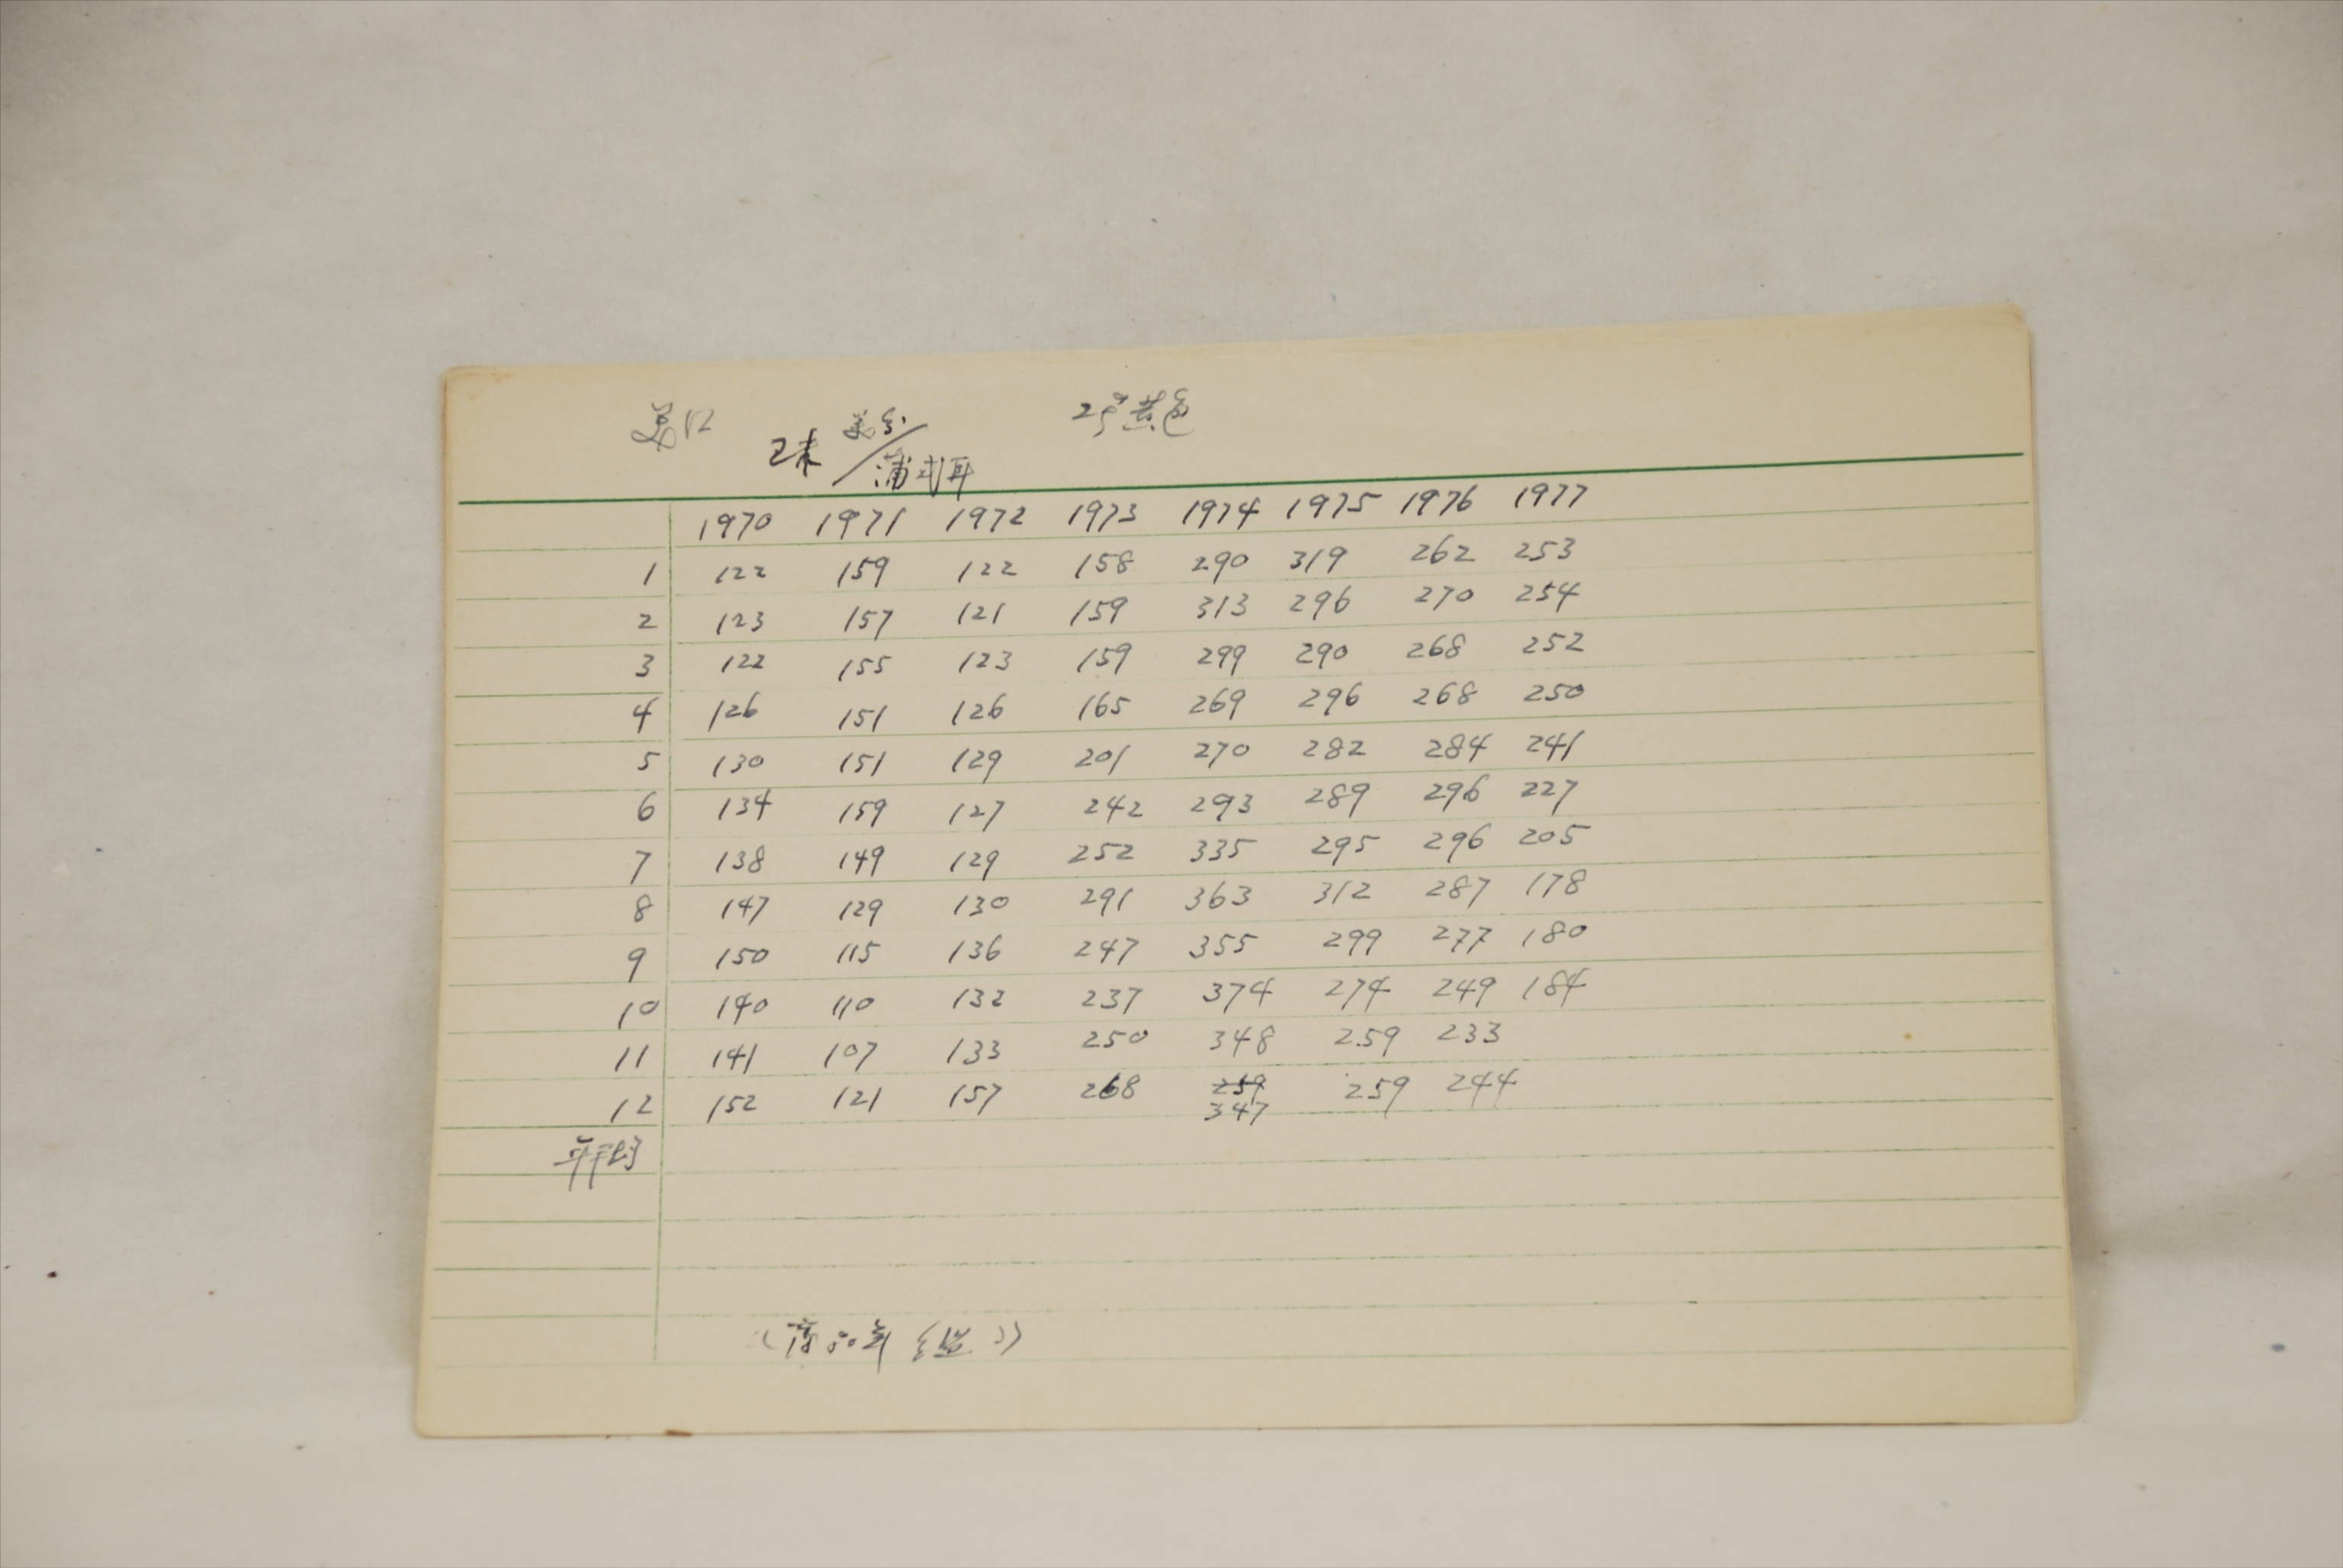 美口 2号黄色
玉米 美分/蒲式耳
1970 1971 1972 1973 1974 1975 1976 1977
1 122 159 122 158 290 319 262 253
2 123 157 121 159 313 296 270 254
3 122 155 123 159 299 290 268 252
4 126 151 126 165 269 296 268 250
5 130 151 129 201 270 282 284 241
6 134 159 127 242 293 289 296 227
7 138 149 129 252 335 295 296 205
8 147 129 130 291 363 312 287 178
9 150 115 136 247 355 299 277 180
10 140 110 132 237 374 274 249 184
11 141 107 133 250 348 259 233
12 152 121 157 268 259 259 244
347
年平均
《商品年鉴》